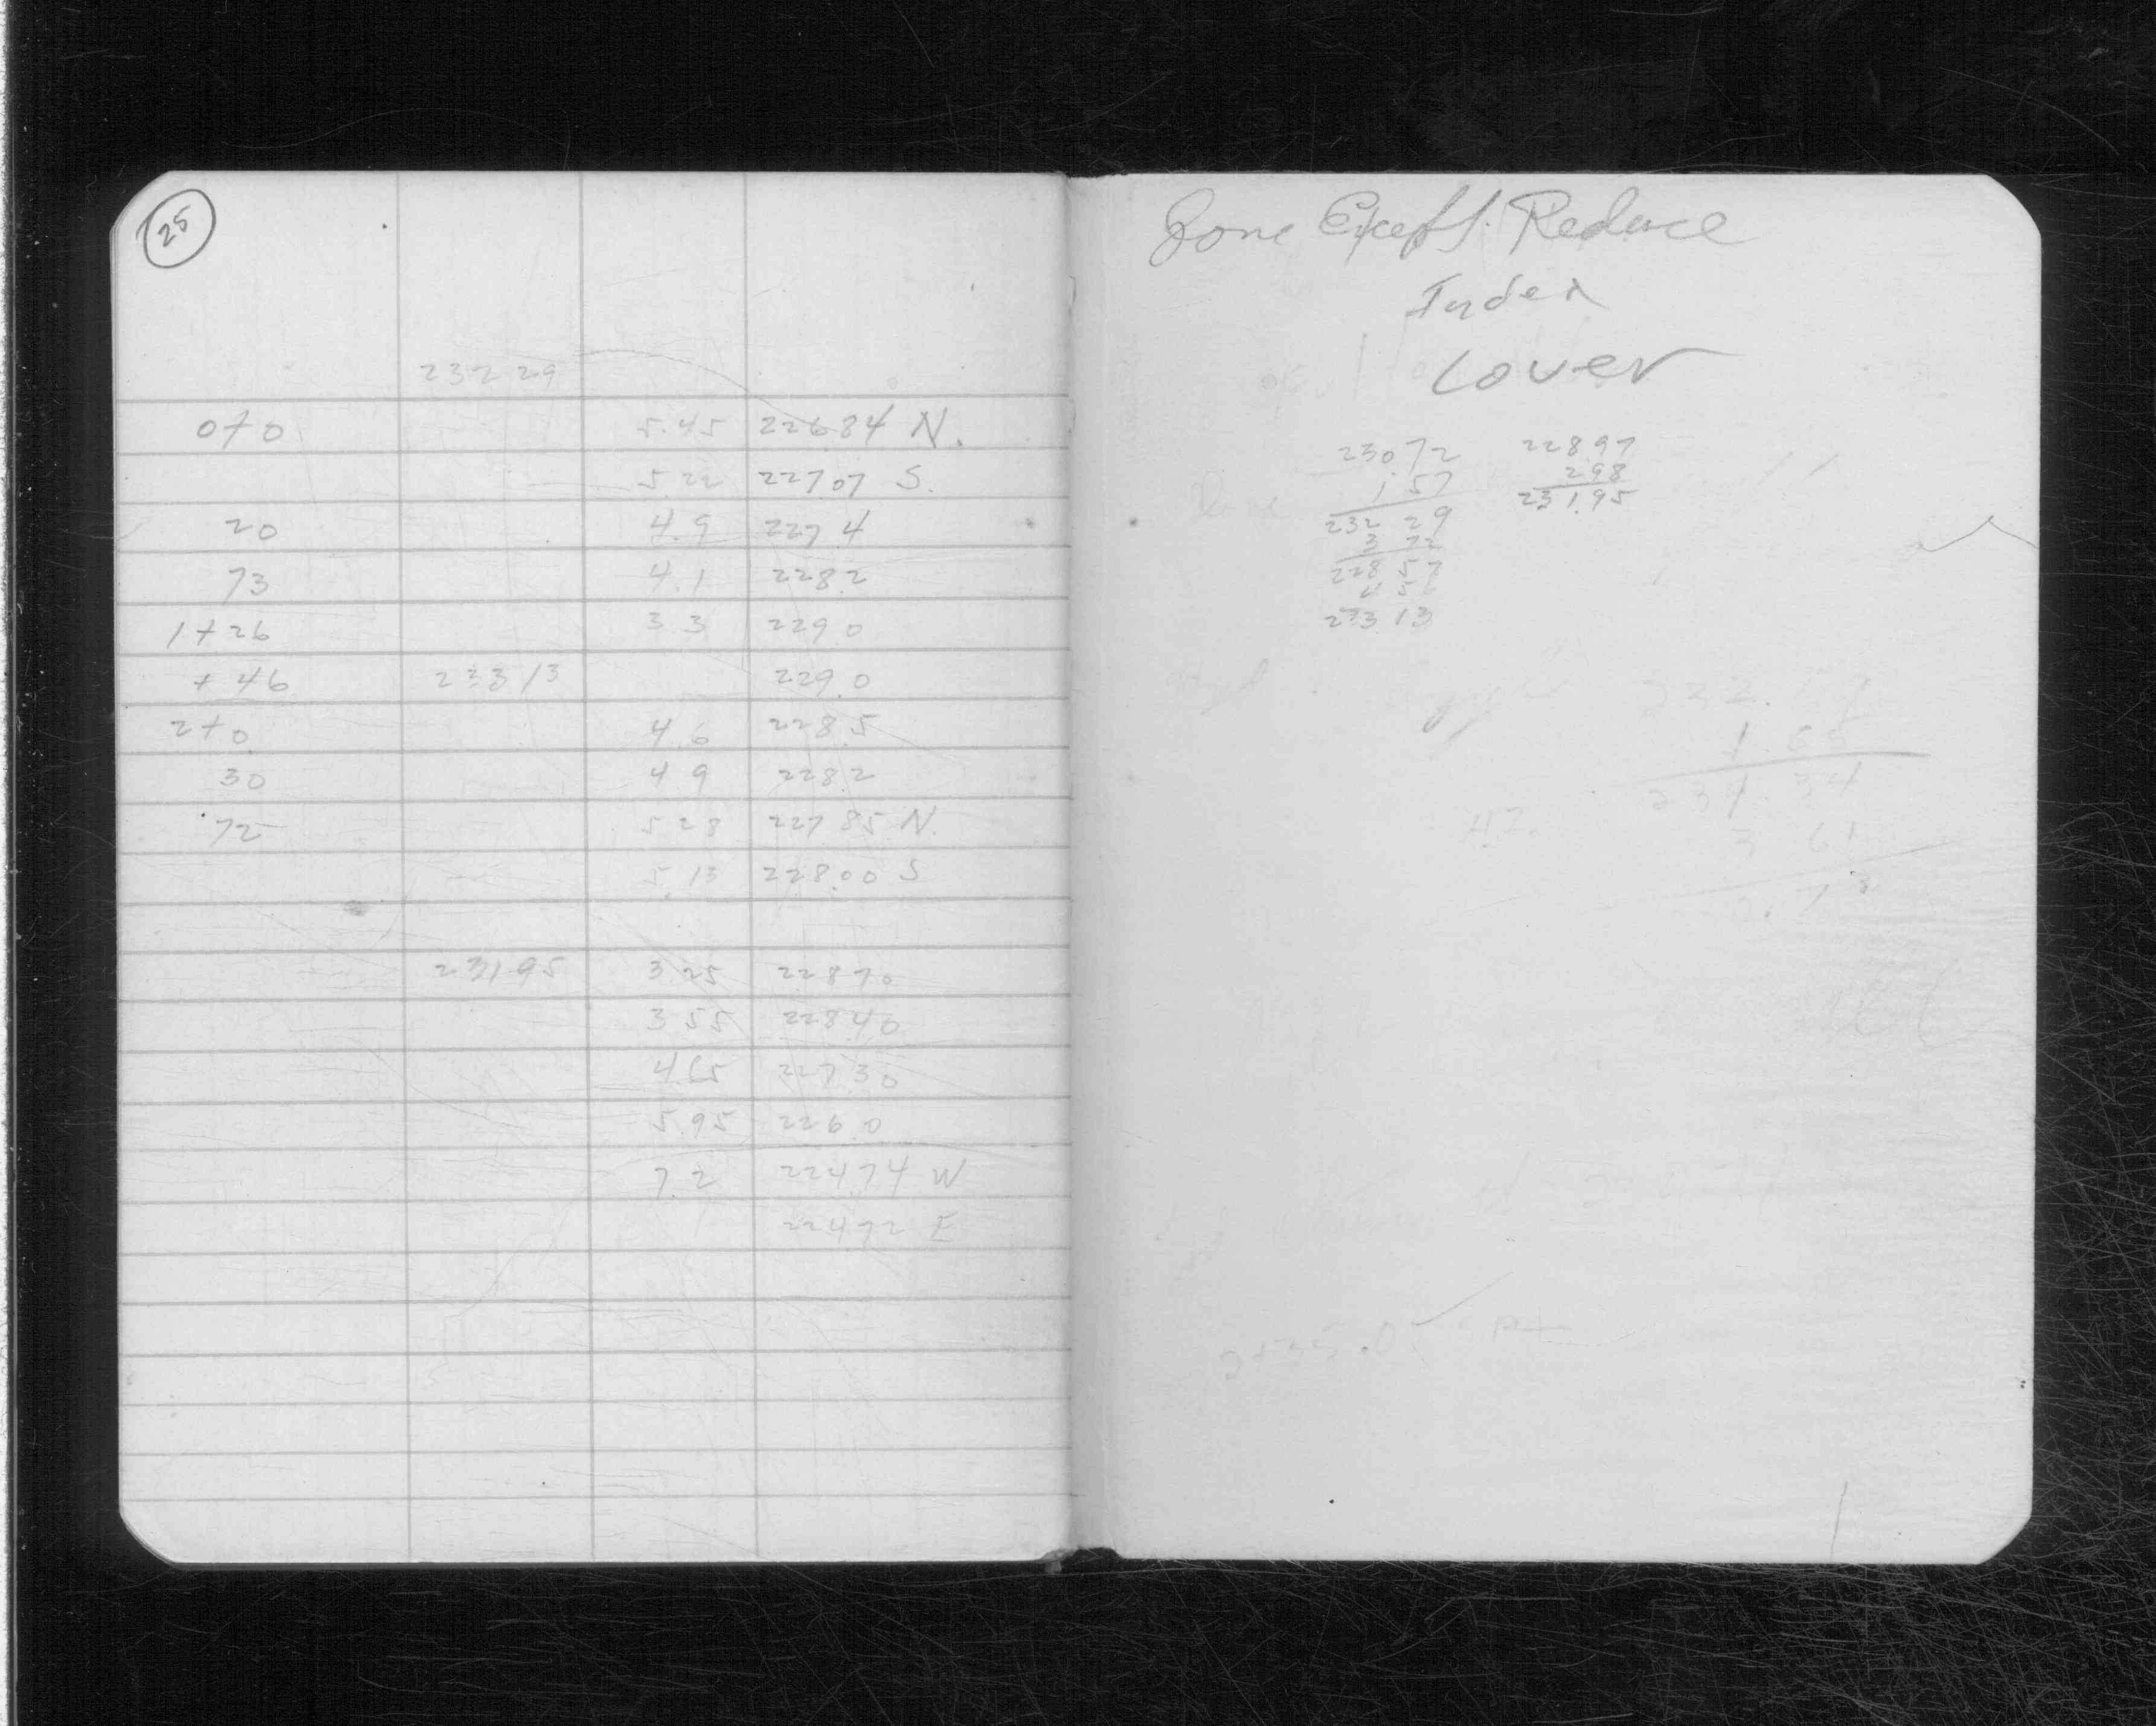 25
232 29
0+0 5.45 226 84 N.
5.22 227 07 S.
20 4.9 227 4
73 4.1 228 2
1+26 3 3 229 0
+ 46 233 13 229.0
2+0 4.6 228 5
30 4 9 228 2
72 5 28 227 85 N.
5.13 228.00 S
231 95 3 25 228 70
3 55 228 40
4 65 227 30
5.95 226 0
7.2 224.74 W
224.72 E
Done Except. Reduce
Index
Cover
230 72 228 97
1 57 2 98
232 29 231.95
3 72
228 57
4 56
233 13